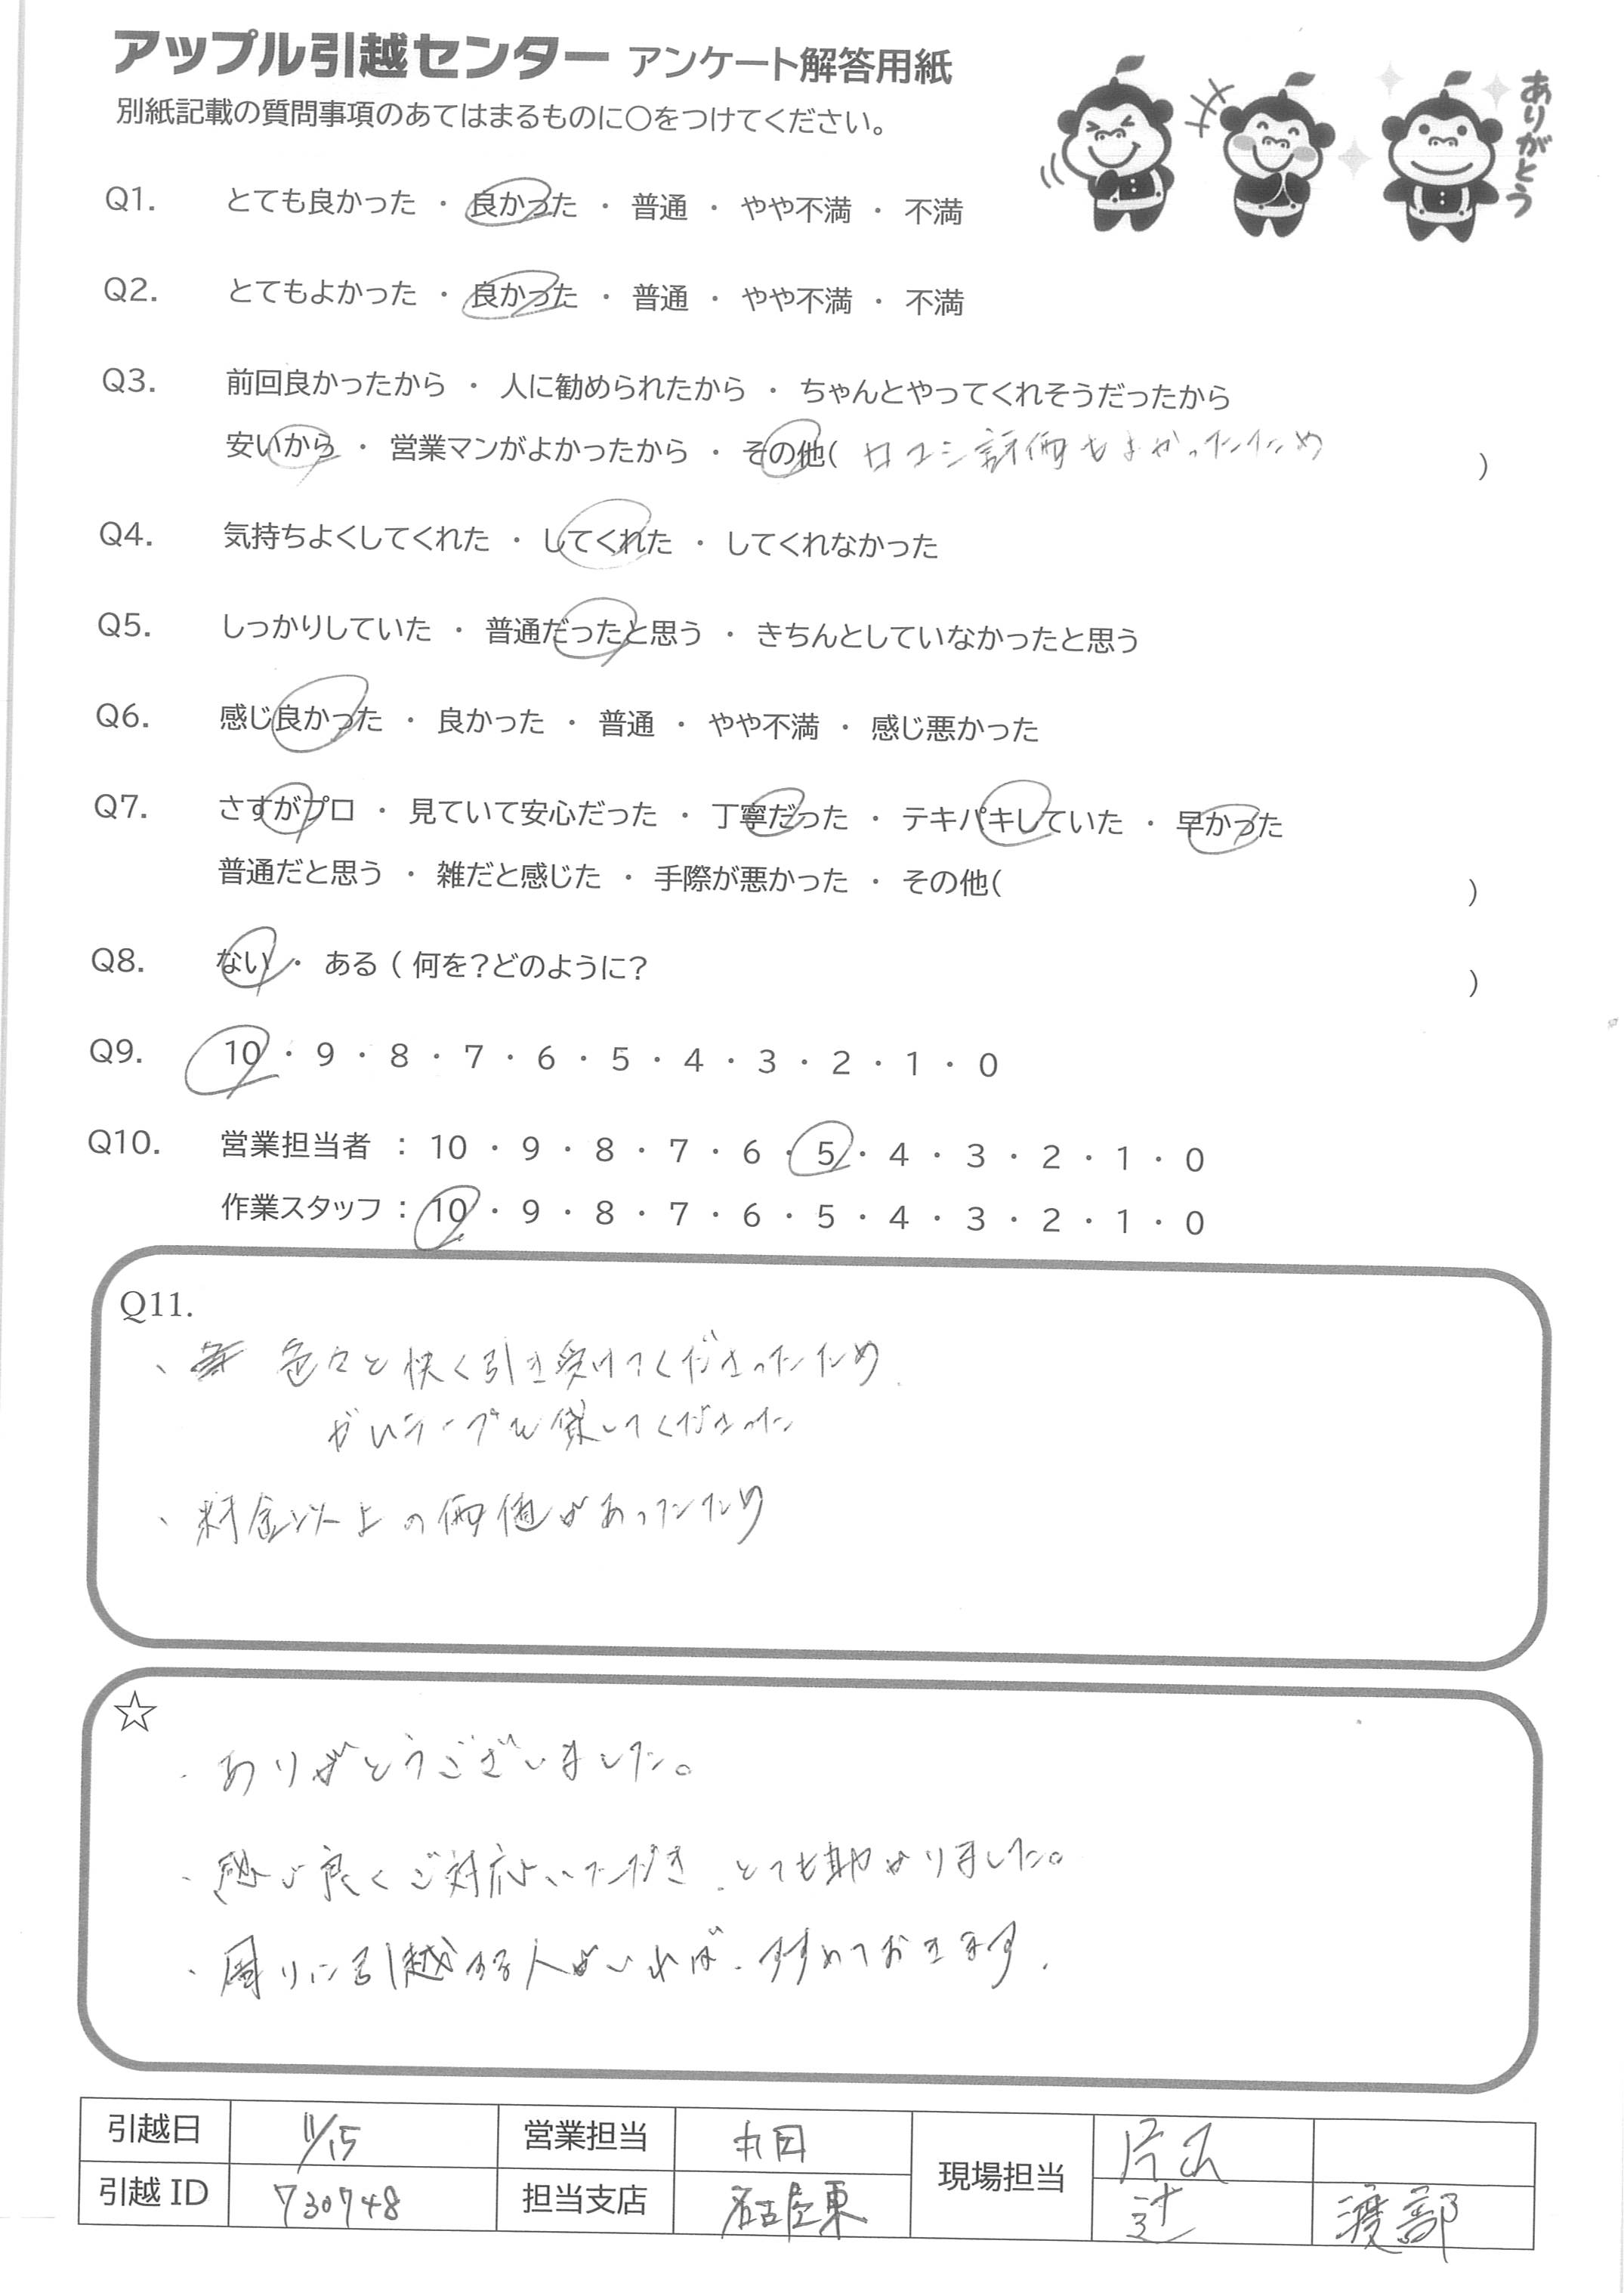 アップル引越センター アンケート解答用紙
別紙記載の質問事項のあてはまるものに○をつけてください。
ありがとう
Q1. とても良かった ・ 良かった ・ 普通 ・ やや不満 ・ 不満
Q2. とてもよかった ・ 良かった ・ 普通 ・ やや不満 ・ 不満
Q3. 前回良かったから ・ 人に勧められたから ・ ちゃんとやってくれそうだったから
安いから ・ 営業マンがよかったから ・ その他( 口コミ評価もよかったため )
Q4. 気持ちよくしてくれた ・ してくれた ・ してくれなかった
Q5. しっかりしていた ・ 普通だったと思う ・ きちんとしていなかったと思う
Q6. 感じ良かった ・ 良かった ・ 普通 ・ やや不満 ・ 感じ悪かった
Q7. さすがプロ ・ 見ていて安心だった ・ 丁寧だった ・ テキパキしていた ・ 早かった
普通だと思う ・ 雑だと感じた ・ 手際が悪かった ・ その他( )
Q8. ない ・ ある ( 何を?どのように? )
Q9. 10 ・ 9 ・ 8 ・ 7 ・ 6 ・ 5 ・ 4 ・ 3 ・ 2 ・ 1 ・ 0
Q10. 営業担当者 : 10 ・ 9 ・ 8 ・ 7 ・ 6 ・ 5 ・ 4 ・ 3 ・ 2 ・ 1 ・ 0
作業スタッフ : 10 ・ 9 ・ 8 ・ 7 ・ 6 ・ 5 ・ 4 ・ 3 ・ 2 ・ 1 ・ 0
Q11.
、色々と快く引き受けてくださったため
ガムテープを貸してくださった
、料金以上の価値があったため
☆
・ありがとうございました。
・感じ良くご対応いただき、とても助かりました。
・周りに引越する人がいれば、すすめておきます.
引越日 11/15 営業担当 現場担当
引越ID 730748 担当支店 名古屋東 辻 渡部